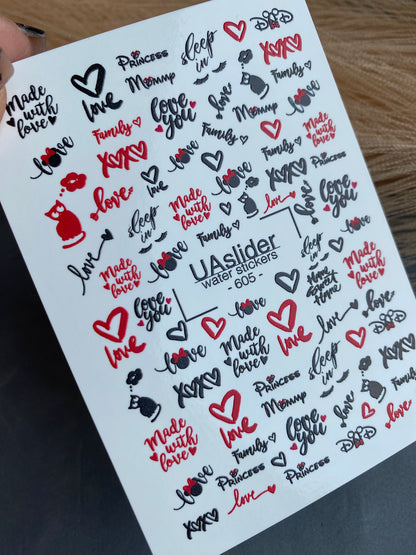 Made
with
love
love
PRINCESS
Mommy
sleep
in
DAD
xoxo
Family
Family
love
you
love
love
xoxo
love
Family
xoxo
Made
with
love
PRINCESS
love
love
love
sleep
in
Made
with
love
love
love
love
you
love
Made
with
love
love
Family
UAslider
water stickers
- 605 -
sleep
in
love
Made
with
love
love
you
love
Home
Sweet
Home
love
love
love
Made
with
love
love
love
DAD
sleep
in
xoxo
PRINCESS
Mommy
love
Made
with
love
love
love
you
love
xoxo
love
Family
DAD
love
PRINCESS
PRINCESS
xoxo
love